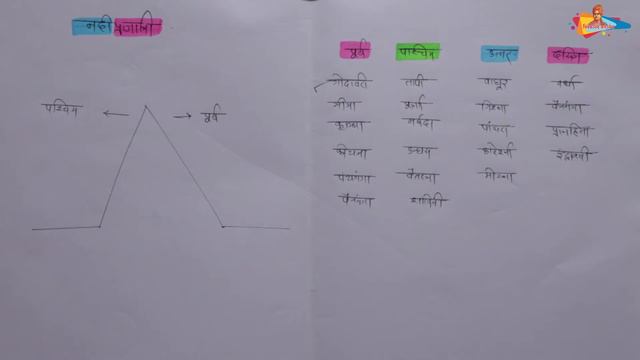 नदी प्रणाली
पश्चिम ← → पूर्व
पूर्व पश्चिम उत्तर दक्षिण
गोदावरी तापी वाघूर वर्धा
भीमा पूर्णा गिरणा वैनगंगा
कृष्णा नर्मदा पांझरा प्राणहिता
कोयना उल्हास बोरी इंद्रावती
पंचगंगा वैतरणा
पैनगंगा सावित्री